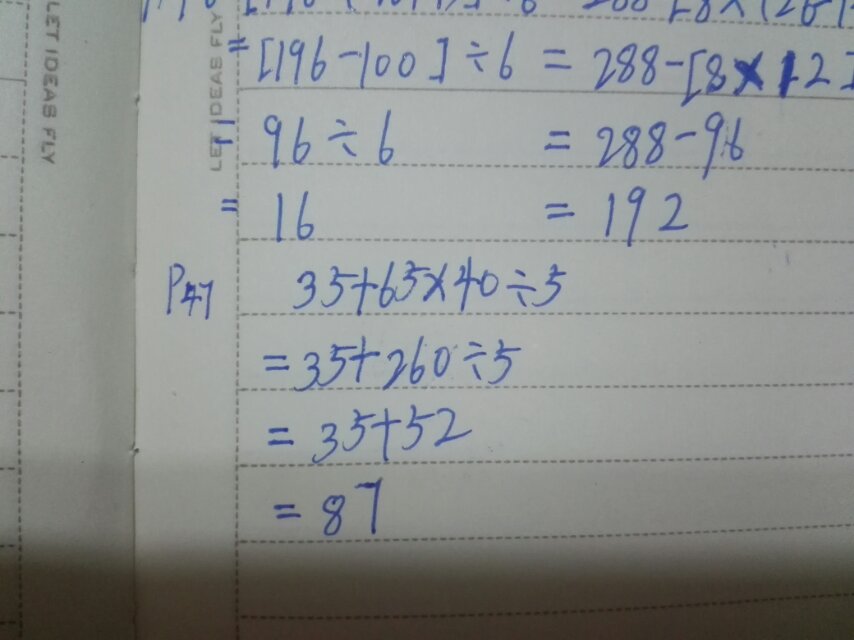 LET IDEAS FLY
LET IDEAS FLY
=[196-100]÷6 = 288-[8×12]
= 96÷6 = 288-96
= 16 = 192
P47 35+65×40÷5
=35+260÷5
= 35+52
= 87